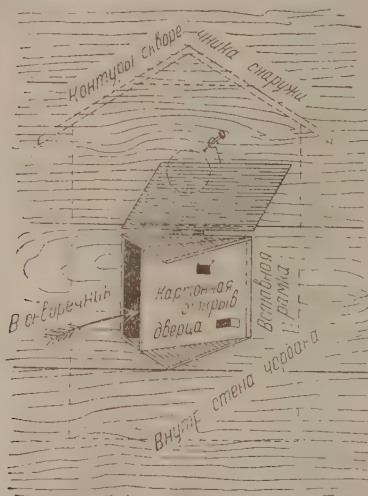 Контуры скворе-
чника снаружи
В скворечник
Картонная
открыв
дверца
Вставная
рамка
Внутр стена чердака